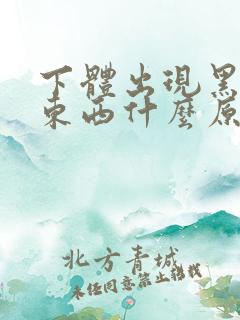 下體出現黑
東西什麼原
北方青城
未经同意禁止转载